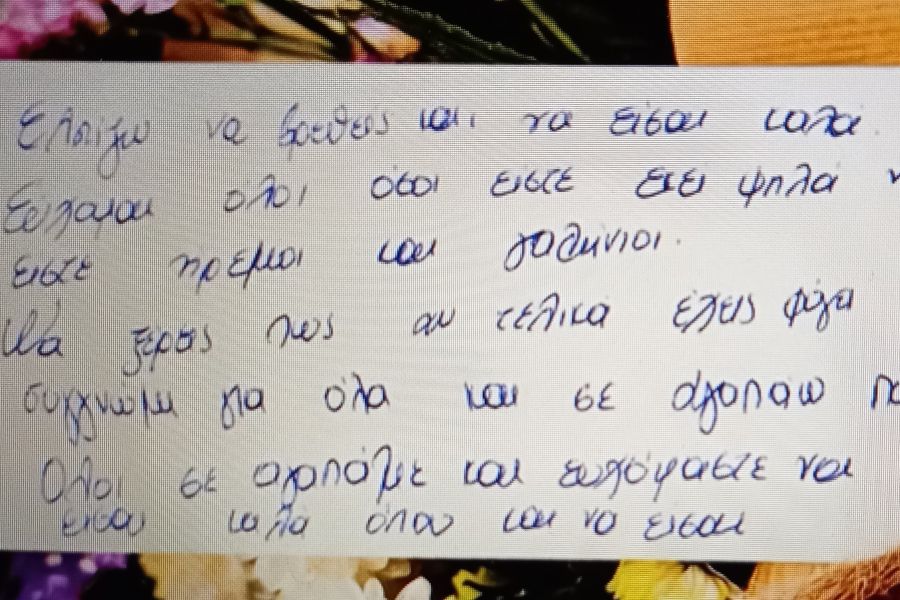 Ελπίζω να βρεθείς και να είσαι καλα
Ευχομαι όλοι όσοι ειστε εκει ψηλα ν
ειστε ηρεμοι και γαληνιοι.
Να ξερεις πως αν τελικά έχεις φύγει
συγγνώμη για όλα και σε αγαπαω πο
Ολοι σε αγαπάμε και ευχόμαστε να
εισαι καλα οπου και να εισαι